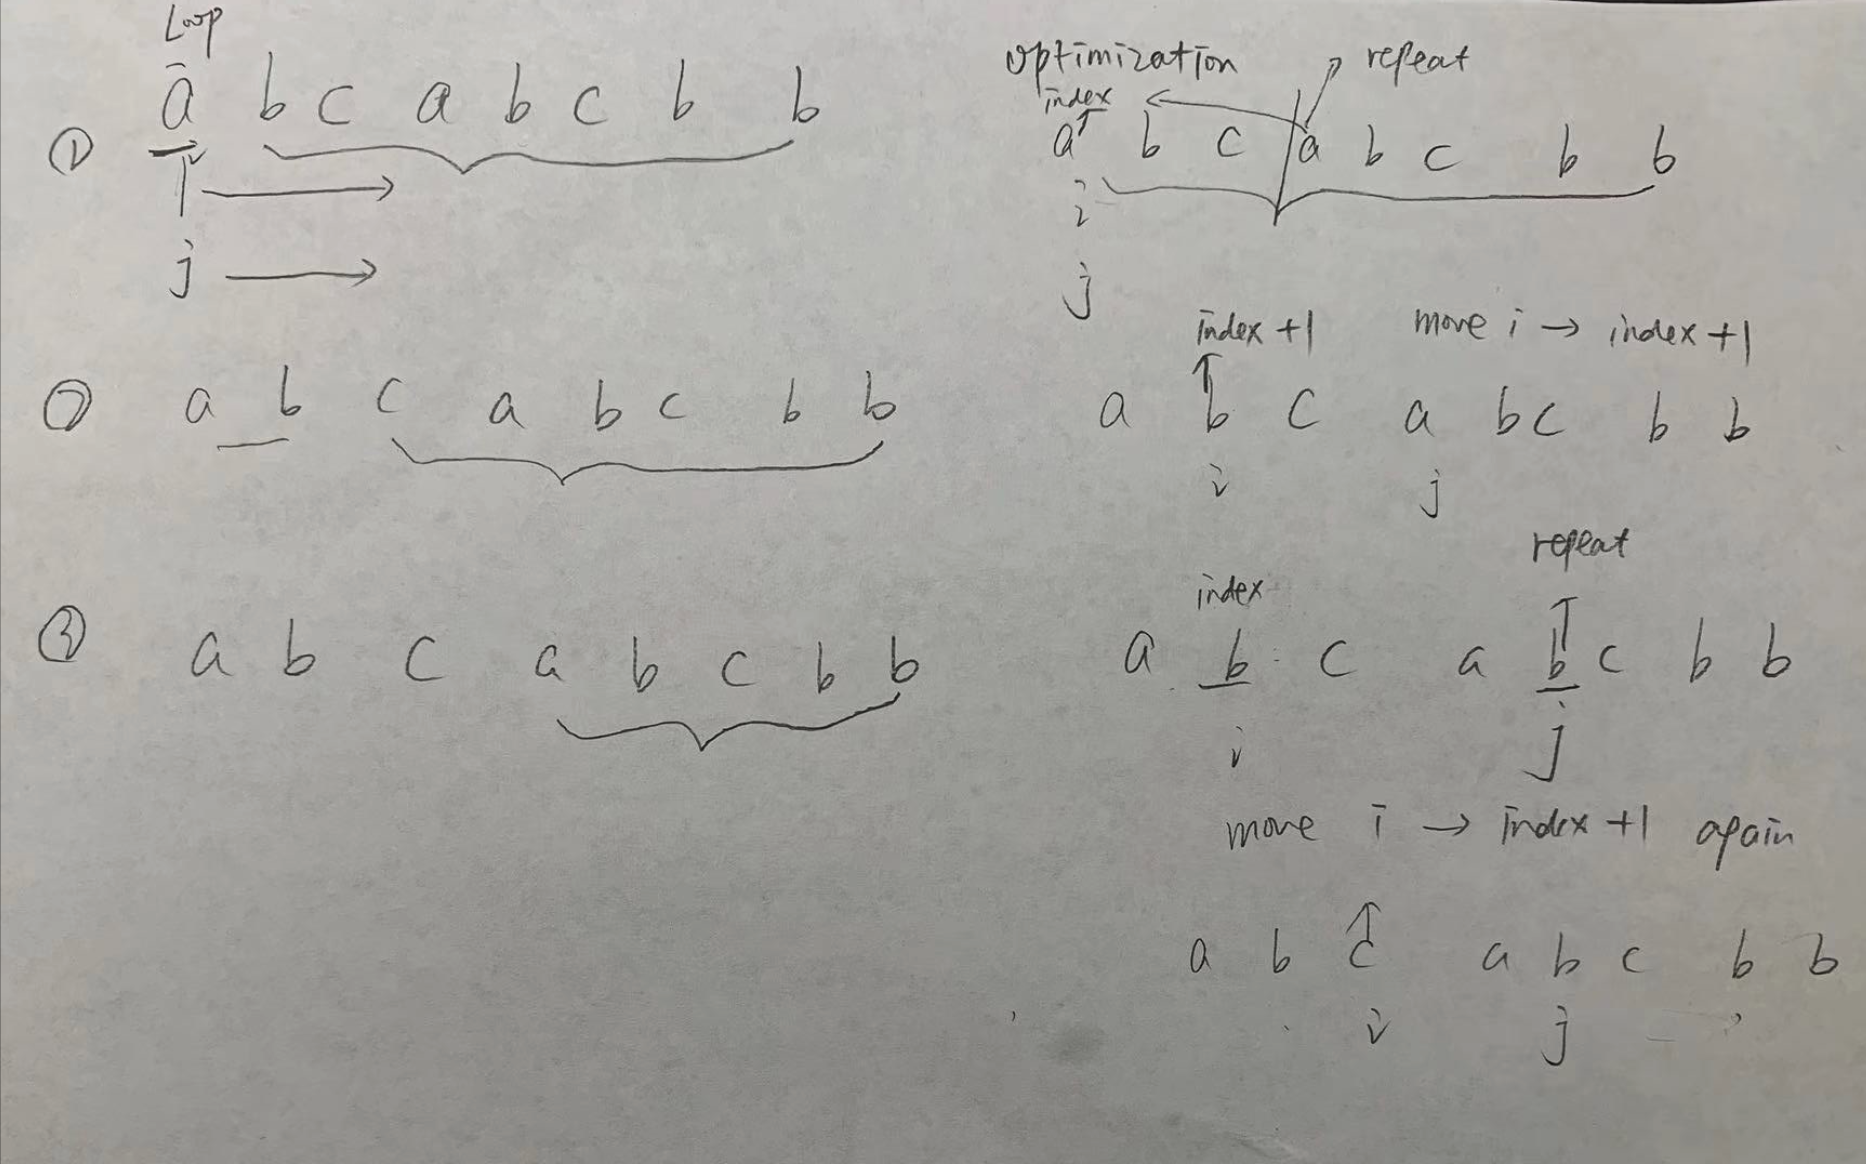 Loop
a b c a b c b b
①
i
j
② a b c a b c b b
③ a b c a b c b b
optimization → repeat
index ←
a ↑ b c a b c b b
i
j
index +1 move i → index +1
↑
a b c a b c b b
i j
repeat
index ↑
a b c a b c b b
i j
move i → index +1 again
↑
a b c a b c b b
i j